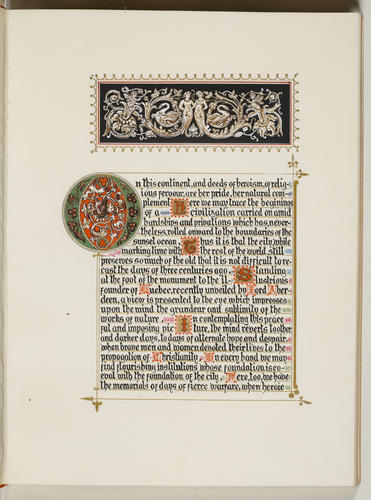 On this continent, and deeds of heroism, of relig-
ious fervour, are her pride, her natural com-
plement. Here we may trace the beginings
of a civilization carried on amid
hardships and privations which has, never-
theless, rolled onward to the boundaries of the
sunset ocean. Thus it is that the city, while
marking time with the rest of the world, still
preserves so much of the old that it is not difficult to re-
cast the days of three centuries ago. Standing
at the foot of the monument to the il- lustrious
founder of Quebec, recently unveiled by Lord Aber-
deen, a view is presented to the eye which impresses
upon the mind the grandeur and sublimity of the
works of nature. In contemplating this peace
ful and imposing pic ture, the mind reverts to other
and darker days, to days of alternate hope and despair,
when brave men and women devoted their lives to the
propogation of Christianity. On every hand we may
find flourishing institutions whose foundation is co-
eval with the foundation of the city. Here, too, we have
the memorials of days of fierce warfare, when heroic